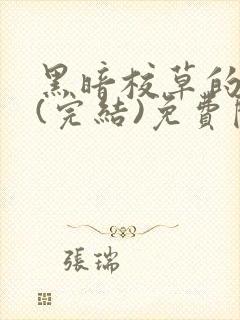 黑暗校草的
(完結)免費
張瑞